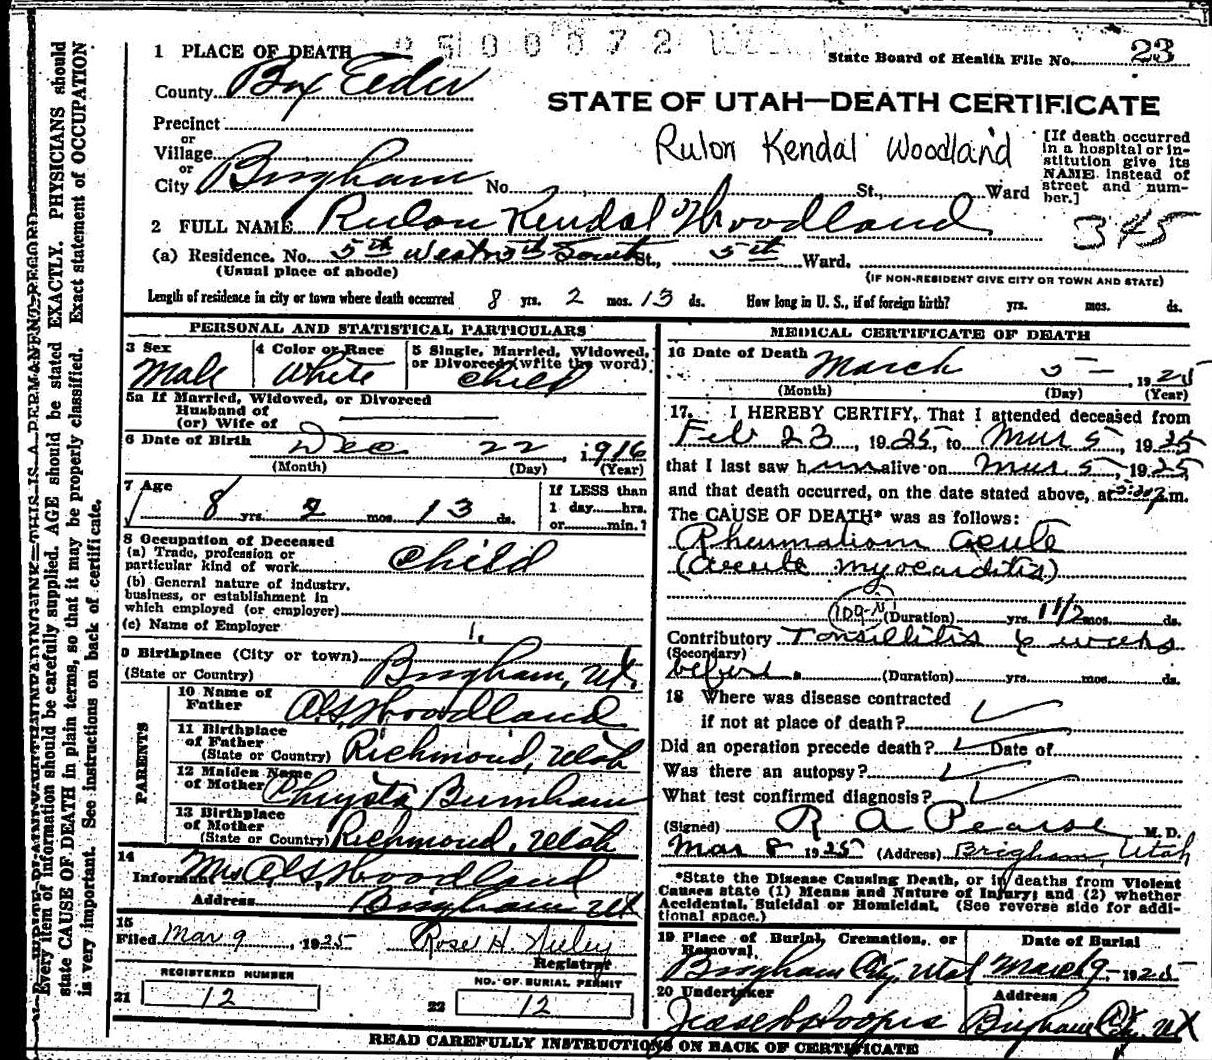 1 PLACE OF DEATH
State Board of Health File No. 23
County Box Elder
STATE OF UTAH—DEATH CERTIFICATE
Precinct
or
Village
or
City Brigham No. St., Ward
Rulon Kendal Woodland
[If death occurred in a hospital or institution give its NAME instead of street and number.]
2 FULL NAME Rulon Kendal Woodland
345
(a) Residence. No. 5th West 5th South St., 5th Ward.
(Usual place of abode)
(IF NON-RESIDENT GIVE CITY OR TOWN AND STATE)
Length of residence in city or town where death occurred 8 yrs. 2 mos. 13 ds. How long in U. S., if of foreign birth? yrs. mos. ds.
PERSONAL AND STATISTICAL PARTICULARS
3 Sex
Male
4 Color or Race
White
5 Single, Married, Widowed, or Divorced (write the word)
Child
5a If Married, Widowed, or Divorced
Husband of
(or) Wife of
6 Date of Birth Dec 22, 1916
(Month) (Day) (Year)
7 Age 8 yrs. 2 mos. 13 ds.
If LESS than
1 day hrs.
or min.?
8 Occupation of Deceased
(a) Trade, profession or
particular kind of work Child
(b) General nature of industry,
business, or establishment in
which employed (or employer)
(c) Name of Employer
9 Birthplace (City or town)
(State or Country) Brigham, Ut.
PARENTS
10 Name of
Father Woodland
11 Birthplace
of Father
(State or Country) Richmond, Utah
12 Maiden Name
of Mother Chrysta Burnham
13 Birthplace
of Mother
(State or Country) Richmond, Utah
14
Informant Mrs Woodland
Address Brigham Ut
15
Filed Mar 9, 1925 Rose H. Neeley
Registrar
REGISTERED NUMBER
21 12
NO. OF BURIAL PERMIT
22 12
MEDICAL CERTIFICATE OF DEATH
16 Date of Death March 5 — , 1925
(Month) (Day) (Year)
17. I HEREBY CERTIFY, That I attended deceased from
Feb 23, 1925, to Mar 5, 1925
that I last saw him alive on Mar 5, 1925,
and that death occurred, on the date stated above, at p.m.
The CAUSE OF DEATH* was as follows:
Rheumatism acute
(acute myocarditis)
(Duration) yrs. 1 1/2 mos. ds.
Contributory Tonsillitis 6 weeks
(Secondary)
before. (Duration) yrs. mos. ds.
18 Where was disease contracted
if not at place of death?
Did an operation precede death? Date of
Was there an autopsy?
What test confirmed diagnosis?
(Signed) R A Pearse M. D.
Mar 8 1925 (Address) Brigham, Utah
*State the Disease Causing Death, or in deaths from Violent
Causes state (1) Means and Nature of Injury; and (2) whether
Accidental, Suicidal or Homicidal. (See reverse side for addi-
tional space.)
19 Place of Burial, Cremation, or Removal
Brigham City, Utah
Date of Burial
March 9 - 1925
20 Undertaker
Hoopes
Address
Brigham City, Ut
READ CAREFULLY INSTRUCTIONS ON BACK OF CERTIFICATE
Every item of information should be carefully supplied. AGE should be stated EXACTLY. PHYSICIANS should
state CAUSE OF DEATH in plain terms, so that it may be properly classified. Exact statement of OCCUPATION
is very important. See instructions on back of certificate.